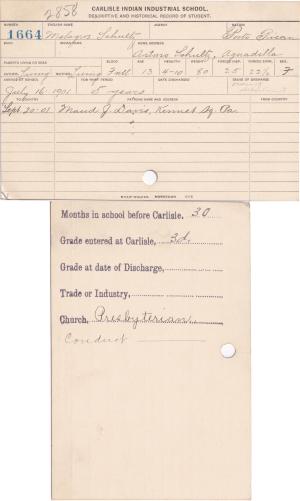 2858
CARLISLE INDIAN INDUSTRIAL SCHOOL.
DESCRIPTIVE AND HISTORICAL RECORD OF STUDENT.
NUMBER ENGLISH NAME AGENCY NATION
1664 Milagros Schultz Porto Rican
BAND INDIAN NAME HOME ADDRESS
Arturo Schultz, Aguadilla
PARENTS LIVING OR DEAD BLOOD AGE HEIGHT WEIGHT FORCED INSP. FORCED EXPR. SEX
FATHER Living MOTHER Living Full 13 4-10 80 25 22½ F
ARRIVED AT SCHOOL FOR WHAT PERIOD DATE DISCHARGED CAUSE OF DISCHARGE
July 16, 1901 5 years
TO COUNTRY PATRONS NAME AND ADDRESS FROM COUNTRY
Sept. 20-01 Maud J. Davis, Kennet Sq. Pa.
Months in school before Carlisle, 30
Grade entered at Carlisle, 3d.
Grade at date of Discharge,
Trade or Industry,
Church, Presbyterian
Conduct